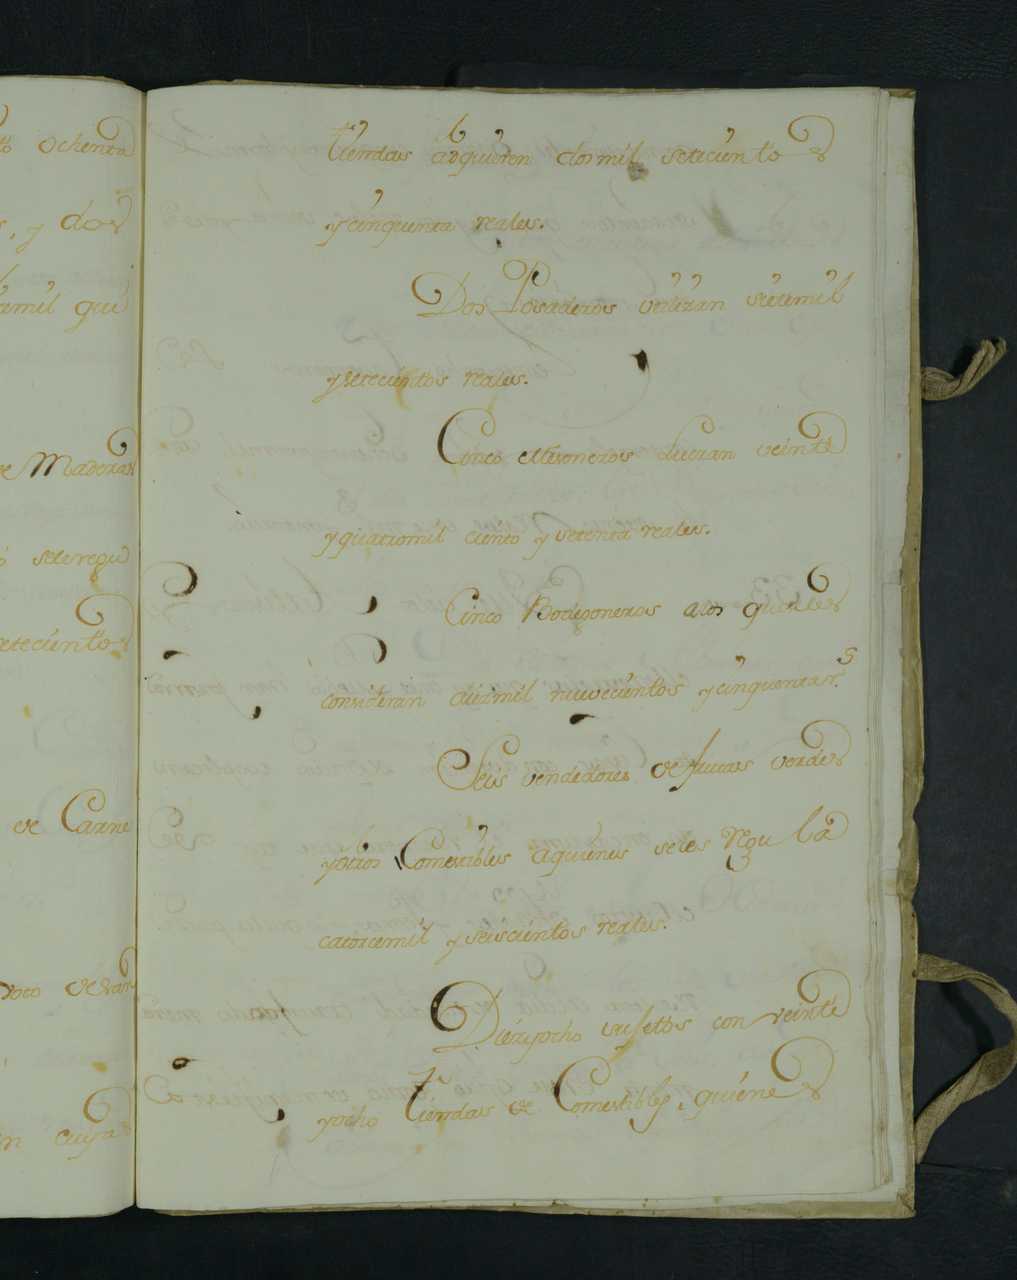 to ochenta
s, y dos
amil qui
de Maderas
ó seleregu
setecientos
de Carne
voto
en cuya
tiendas adquieren dosmil setecientos
y cinquenta reales.
Dos Posaderos utilizan sietemil
y setecientos reales.
Cinco Mesoneros Lucran veinte
y quatromil ciento y setenta reales.
Cinco Bodegoneros alos quales
consideran diezmil nuevecientos y cinquenta r.s
Seis vendedores de frutas verdes
y otros Comestibles aquienes seles Regula
catorcemil y seiscientos reales.
Diezyocho sujettos con veinte
yocho tiendas de Comestibles, quienes